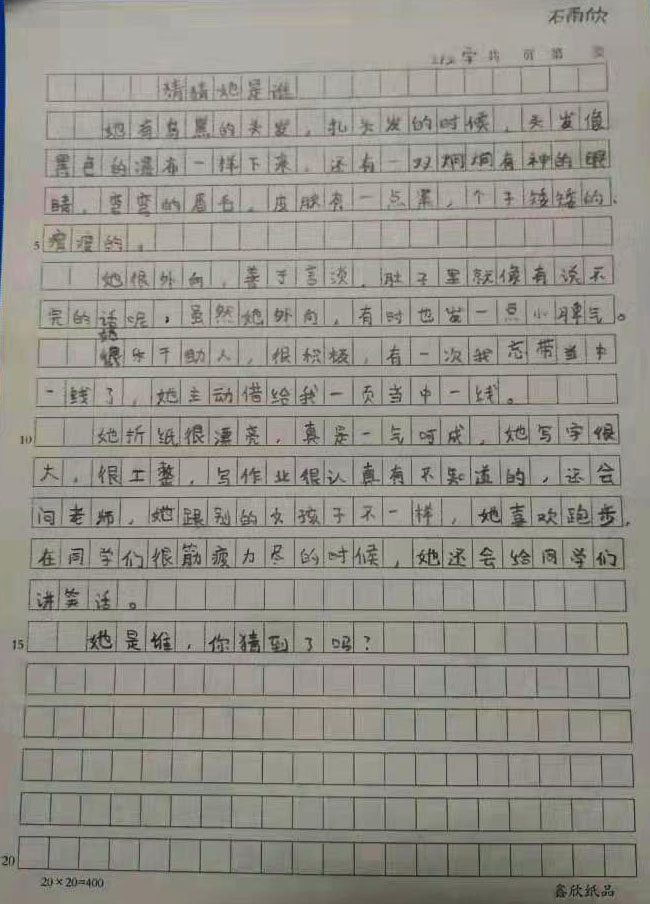 石雨欣
212字 共 页 第 页
猜猜她是谁
她有乌黑的头发，扎头发的时候，头发像
黑色的瀑布一样下来，还有一双炯炯有神的眼
睛，弯弯的眉毛，皮肤有一点黑，个子矮矮的，
瘦瘦的。
5
她很外向，善于言谈，肚子里就像有说不
完的话呢，虽然她外向，有时也发一点小脾气。
她很乐于助人，很积极，有一次我忘带当中
一线了，她主动借给我一页当中一线。
10
她折纸很漂亮，真是一气呵成，她写字很
大，很工整，写作业很认真有不知道的，还会
问老师，她跟别的女孩子不一样，她喜欢跑步，
在同学们很筋疲力尽的时候，她还会给同学们
讲笑话。
15
她是谁，你猜到了吗？
20
20×20=400
鑫欣纸品